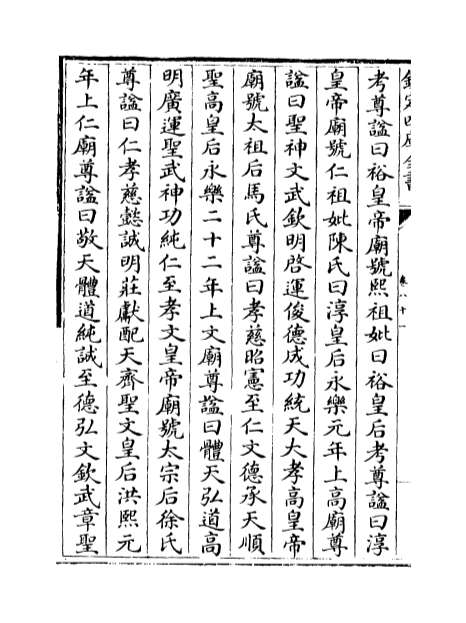 欽定四庫全書
卷八十一
考尊諡曰裕皇帝廟號熙祖妣曰裕皇后考尊諡曰淳
皇帝廟號仁祖妣陳氏曰淳皇后永樂元年上高廟尊
諡曰聖神文武欽明啓運俊德成功統天大孝高皇帝
廟號太祖后馬氏尊諡曰孝慈昭憲至仁文德承天順
聖高皇后永樂二十二年上文廟尊諡曰體天弘道高
明廣運聖武神功純仁至孝文皇帝廟號太宗后徐氏
尊諡曰仁孝慈懿誠明莊獻配天齊聖文皇后洪熙元
年上仁廟尊諡曰敬天體道純誠至德弘文欽武章聖